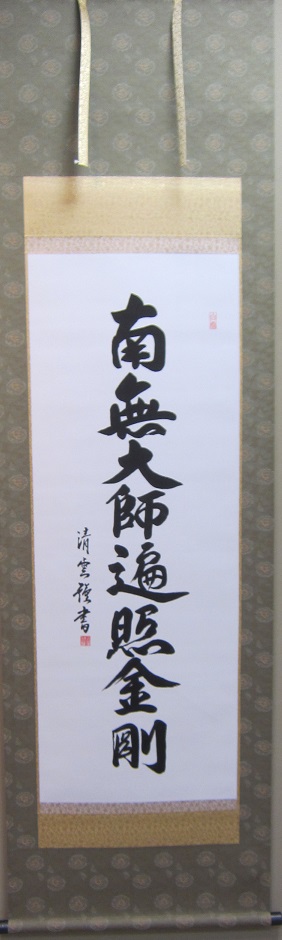 南無大師遍照金剛
清雲謹書